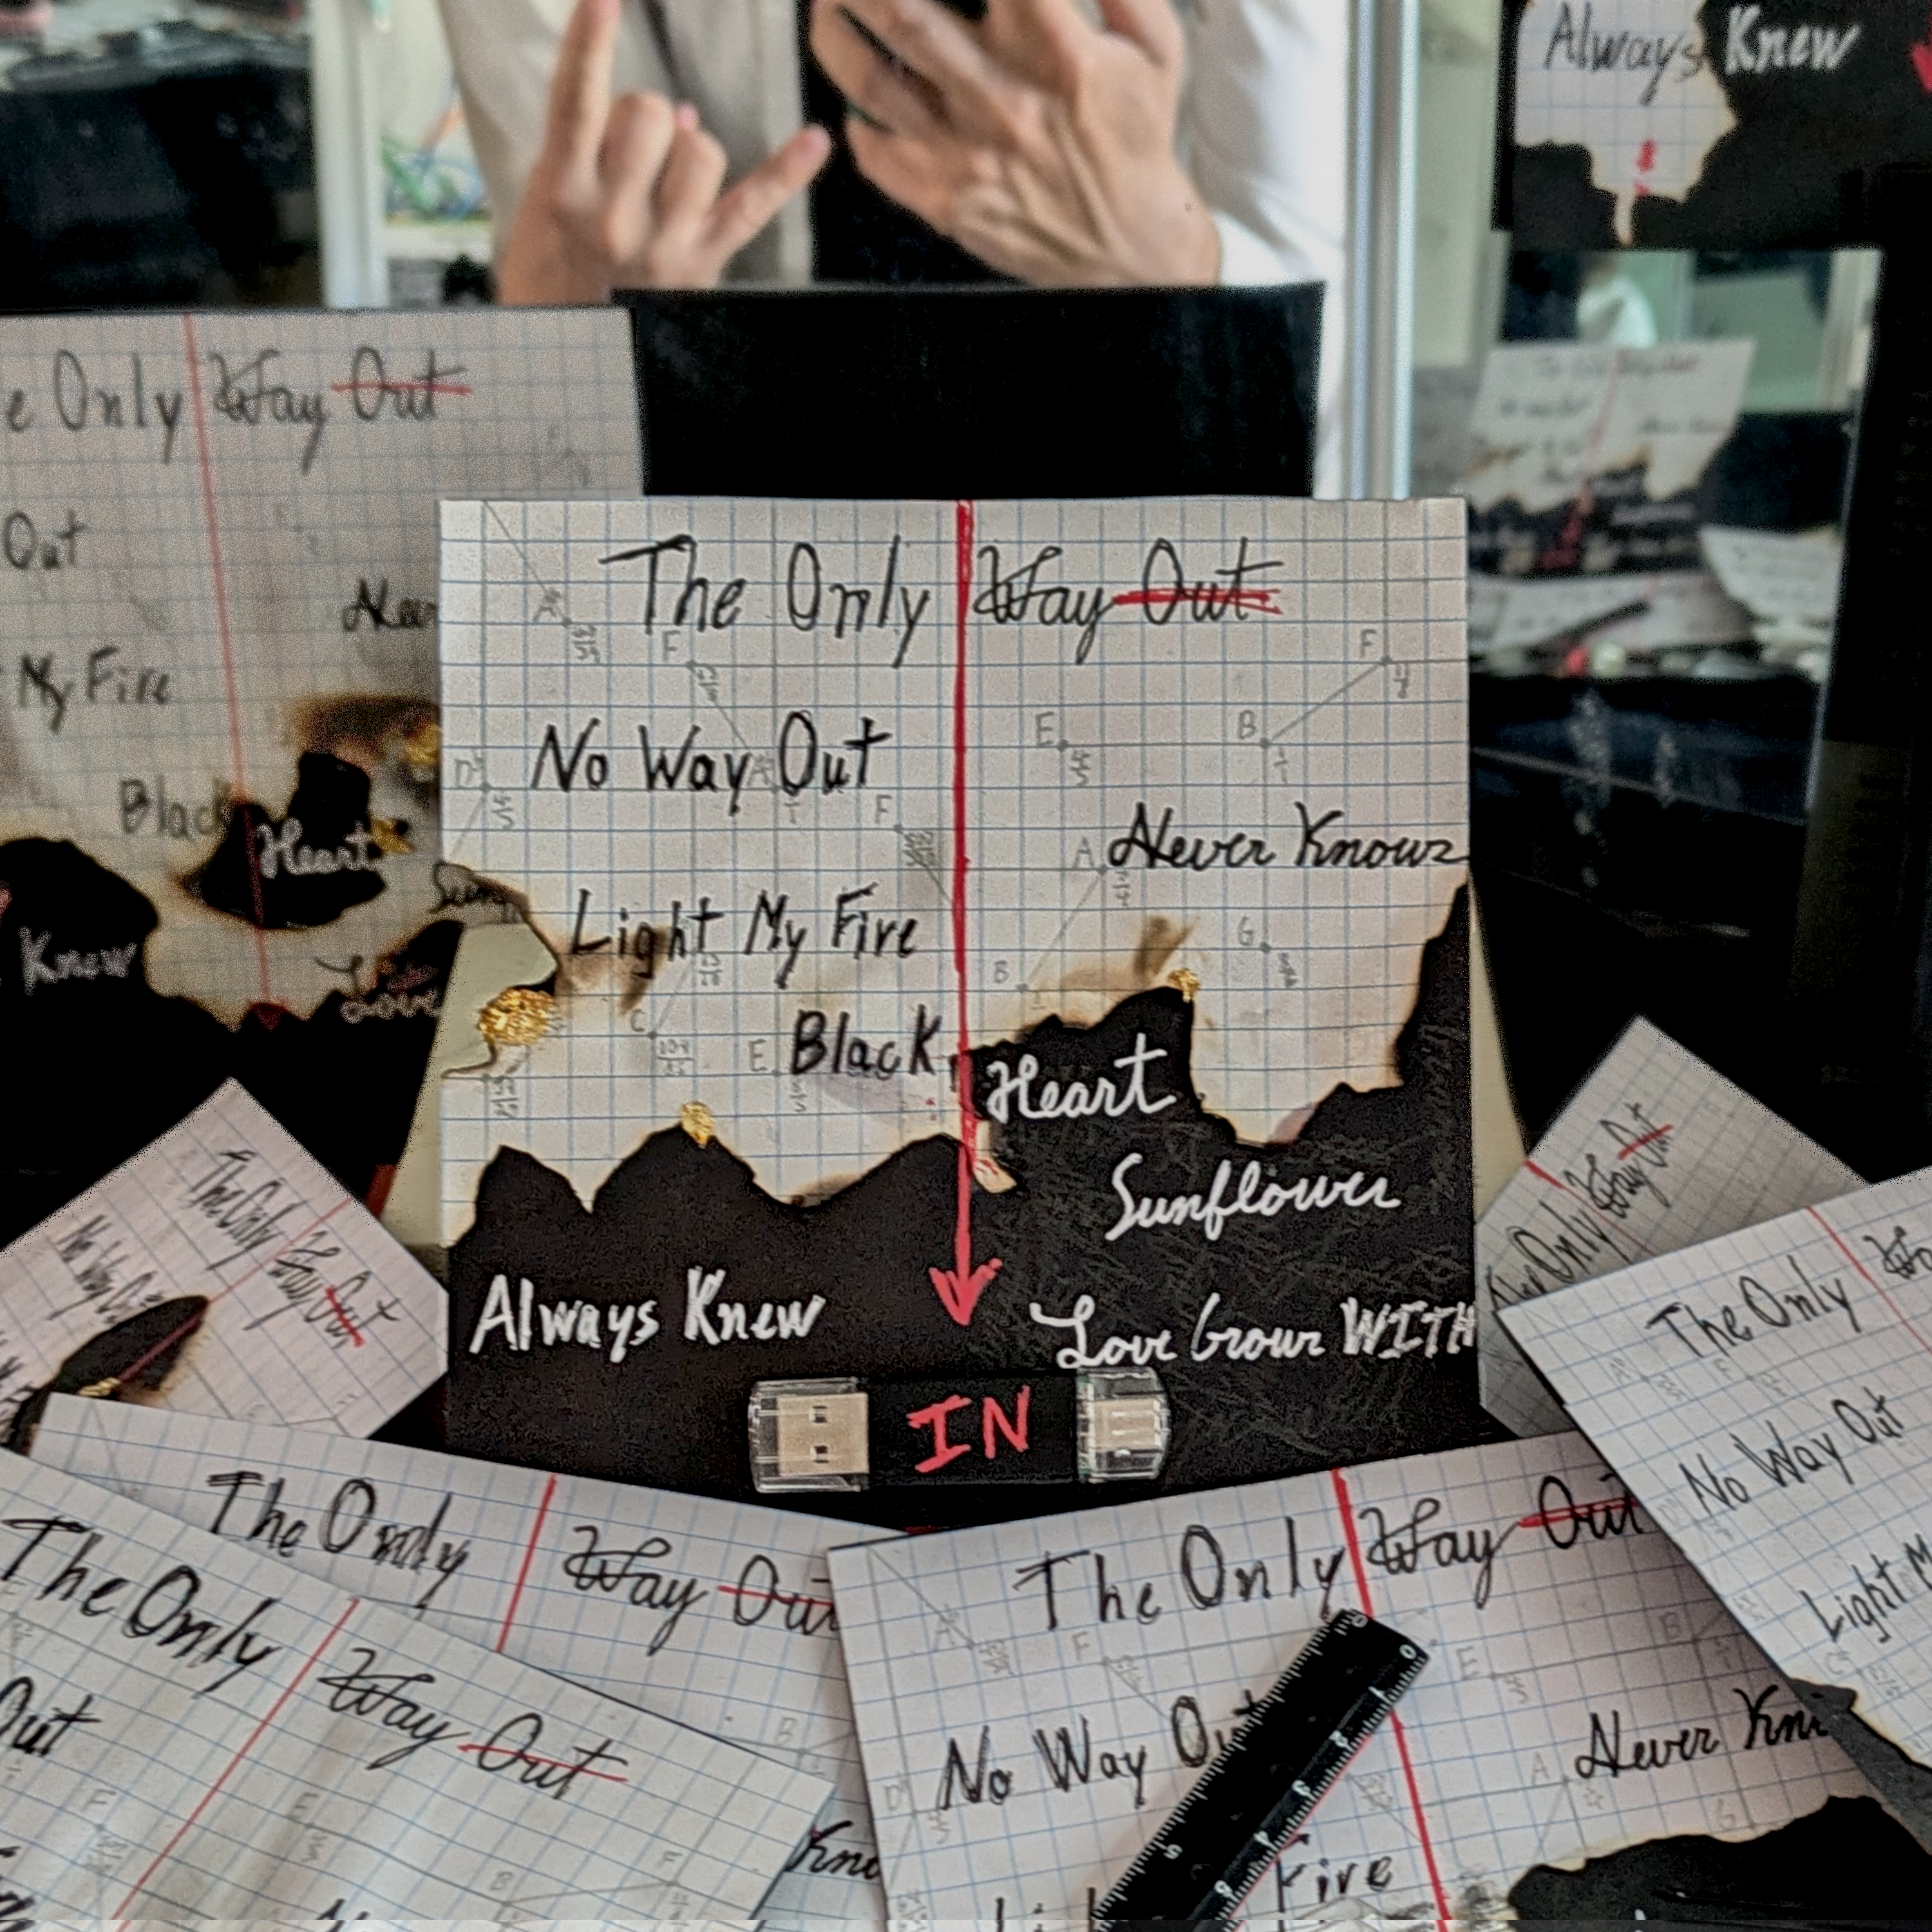 Always Knew
Only Way Out
Out
My Fire
Black Heart
Knew
Love
The Only Way Out
No Way Out
Never Knowz
Light My Fire
Black Heart
Sunflower
Always Knew
Love Grown WITH
IN
The Only Way Out
No Way Out
Only Way Out
The Only
No Way Out
Light M
The Only Way Out
The Only Way Out
Out
The Only Way Out
No Way Out
Never Kn
Fire